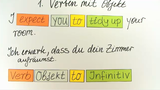 1. Verben mit Objekt
I expect you to tidy up your
room.
Ich erwarte, dass du dein Zimmer
aufräumst.
Verb Objekt to Infinitiv